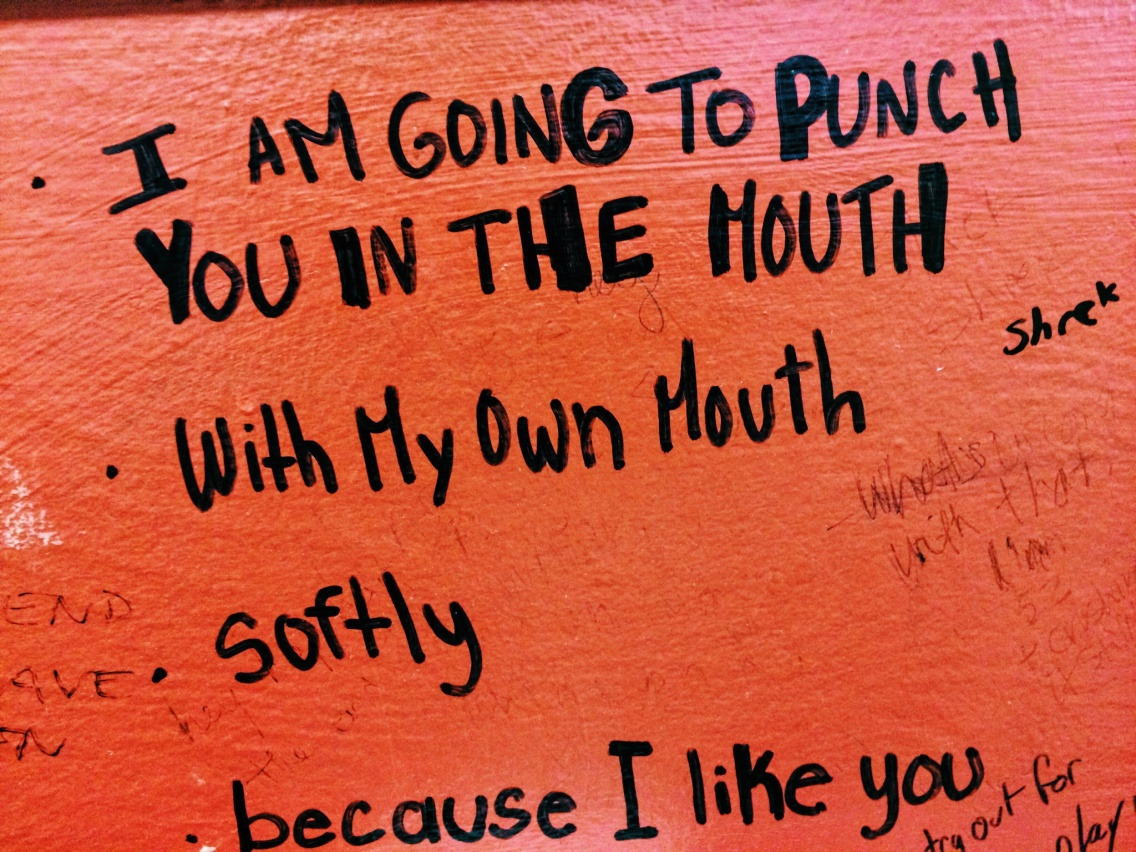 • I AM GOING TO PUNCH
YOU IN THE MOUTH
shrek
• With My Own Mouth
with that
END
• softly
hey
• because I like you
try out for
play